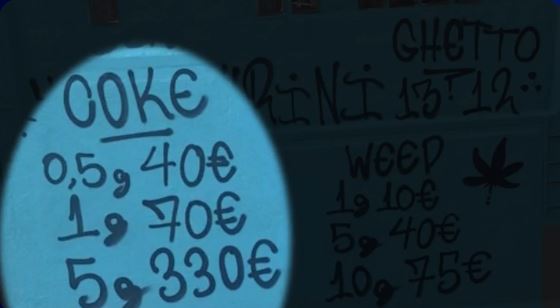 GHETTO
RiNi 13 12
COKE
0,5g 40€
1g 70€
5g 330€
WEED
1g 10€
5g 40€
10g 75€